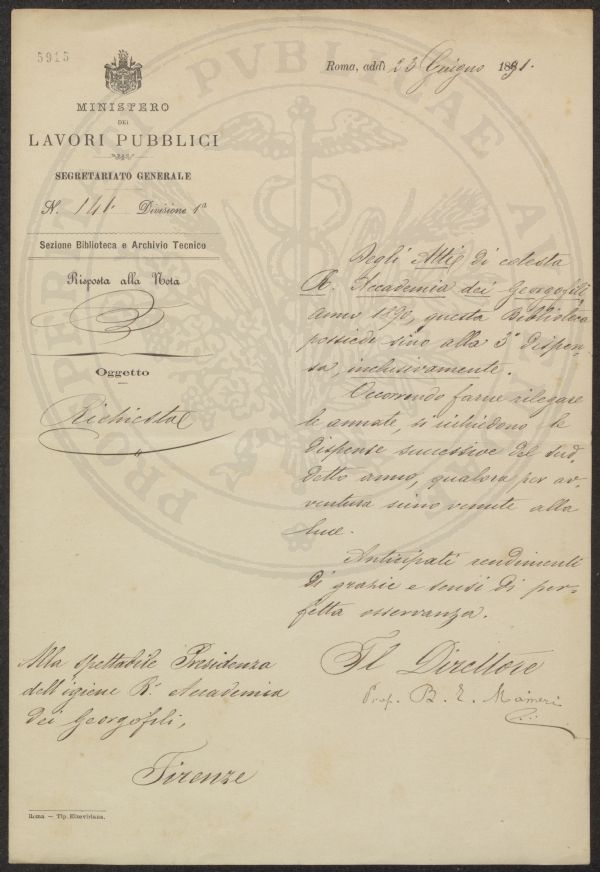 5915
MINISTERO
DEI
LAVORI PUBBLICI
SEGRETARIATO GENERALE
N. 141. Divisione 1ª
Sezione Biblioteca e Archivio Tecnico
Risposta alla Nota
Oggetto
Richiesta
Roma, addì 23 Giugno 1891.
Degli Atti di codesta
R. Accademia dei Georgofili,
anno 1890, questa Biblioteca
possiede sino alla 3ª dispen-
sa, inclusivamente.
Occorrendo farne rilegare
le annate, si richiedono le
dispense successive del sud-
detto anno, qualora per av-
ventura sieno venute alla
luce.
Anticipati rendimenti
di grazie e sensi di per-
fetta osservanza.
Il Direttore
Prof. B. E. Maineri
Alla spettabile Presidenza
dell' R. Accademia
dei Georgofili,
Firenze
Roma — Tip. Elzeviriana.
PRO PUBLICAE